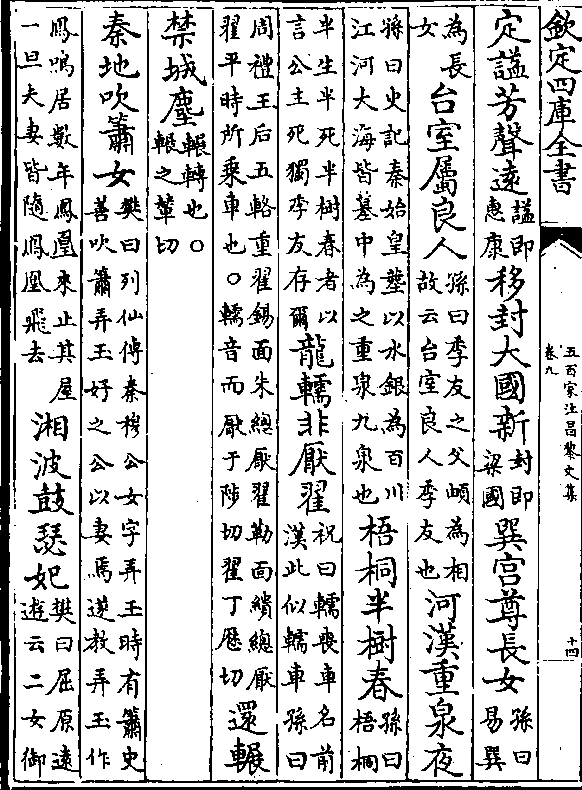 欽定四庫全書
五百家注昌黎文集
卷九
十四
定諡芳聲遠諡即惠康移封大國新封即梁國巽宮尊長女孫曰易巽
為長女台室屬良人孫曰季友之父頔為相故云台室良人季友也河漢重泉夜
孫曰史記秦始皇塟以水銀為百川江河大海皆墓中為之重泉九泉也梧桐半樹春孫曰梧桐
半生半死半樹春者以言公主死獨季友存爾龍轜非厭翟祝曰轜喪車名前漢此似轜車孫曰
周禮王后五輅重翟錫面朱總厭翟勒面繢總厭翟平時所乗車也○轜音而厭于陟切翟丁歴切還輾
禁城塵輾轉也○輾之輦切
秦地吹簫女樊曰列仙傳秦穆公女字弄玉時有簫史善吹簫弄玉好之公以妻焉遂教弄玉作
鳳鳴居數年鳳凰來止其屋一旦夫妻皆隨鳳凰飛去湘波鼓瑟妃樊曰屈原遠遊云二女御